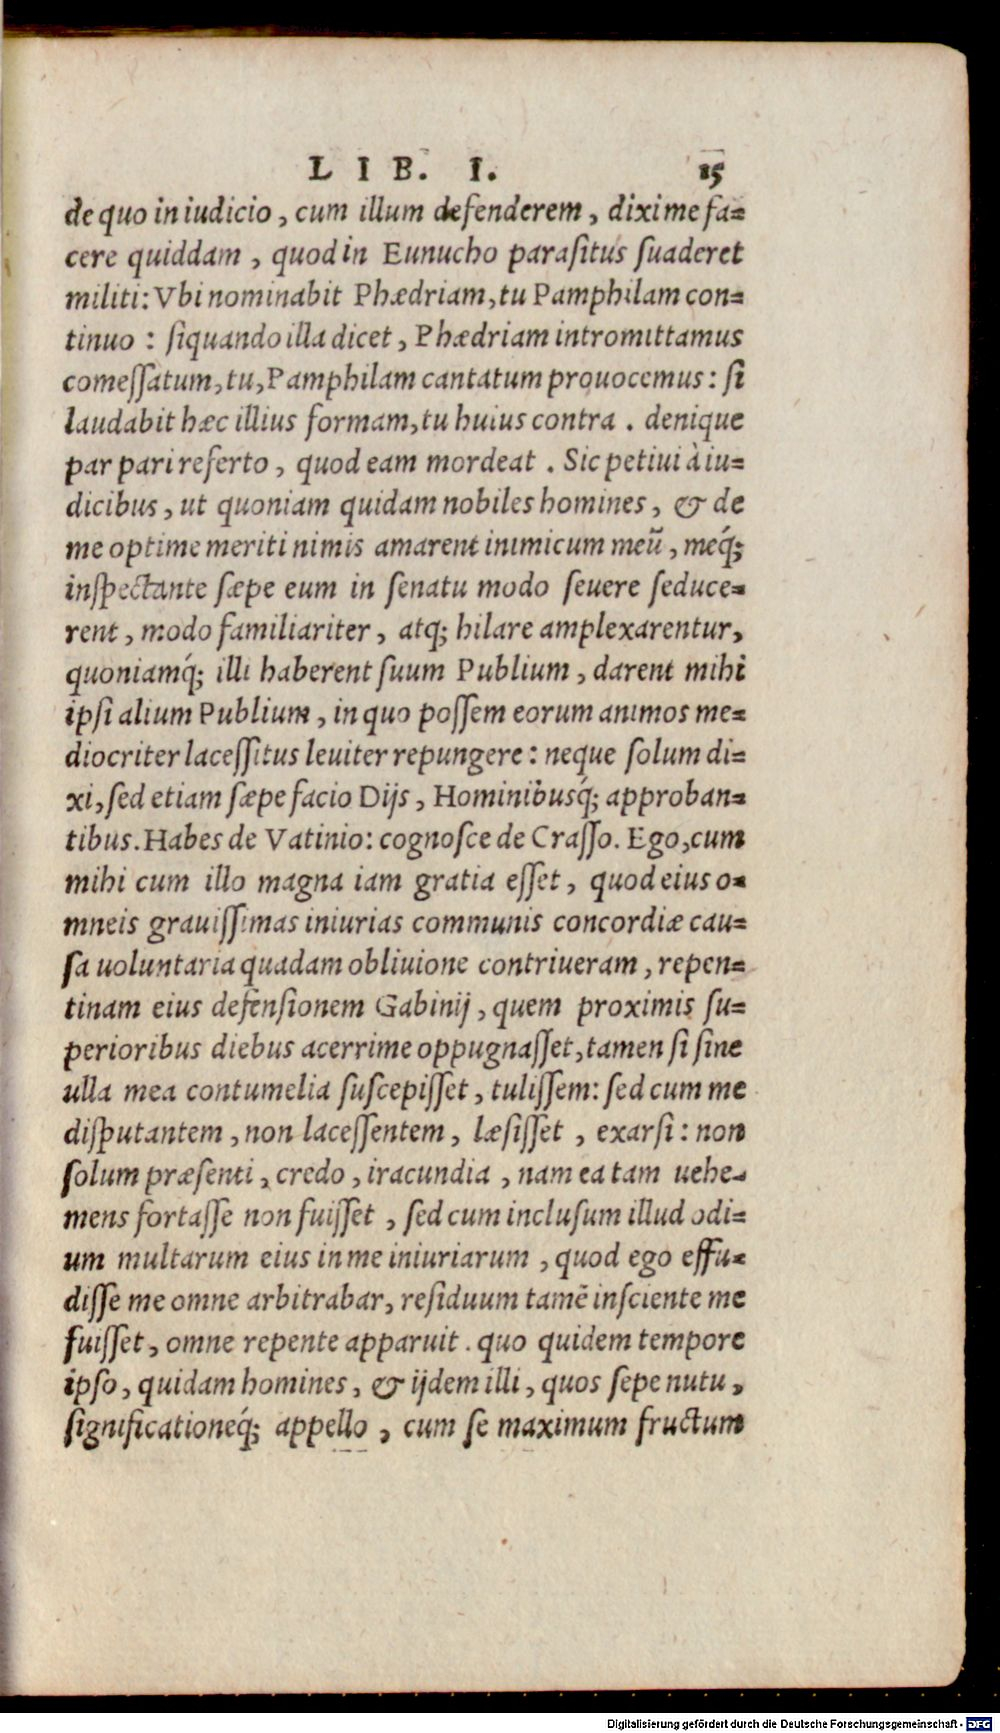 LIB. I. 15
de quo in iudicio, cum illum defenderem, dixi me fa=
cere quiddam, quod in Eunucho parasitus suaderet
militi: Vbi nominabit Phædriam, tu Pamphilam con=
tinuo: siquando illa dicet, Phædriam intromittamus
comeſſatum, tu, Pamphilam cantatum prouocemus: si
laudabit hæc illius formam, tu huius contra. denique
par pari referto, quod eam mordeat. Sic petiui à iu=
dicibus, ut quoniam quidam nobiles homines, & de
me optime meriti nimis amarent inimicum meũ, meq́;
inſpectante ſæpe eum in ſenatu modo ſeuere ſeduce=
rent, modo familiariter, atq; hilare amplexarentur,
quoniamq́; illi haberent ſuum Publium, darent mihi
ipſi alium Publium, in quo poſſem eorum animos me=
diocriter laceſſitus leuiter repungere: neque ſolum di=
xi, ſed etiam ſæpe facio Dijs, Hominibusq́; approban=
tibus. Habes de Vatinio: cognoſce de Craſſo. Ego, cum
mihi cum illo magna iam gratia eſſet, quod eius o=
mneis grauiſſimas iniurias communis concordiæ cau=
ſa uoluntaria quadam obliuione contriueram, repen=
tinam eius defenſionem Gabinij, quem proximis ſu=
perioribus diebus acerrime oppugnaſſet, tamen ſi ſine
ulla mea contumelia ſuſcepiſſet, tuliſſem: ſed cum me
diſputantem, non laceſſentem, læſiſſet, exarſi: non
ſolum præſenti, credo, iracundia, nam ea tam uehe=
mens fortaſſe non fuiſſet, ſed cum incluſum illud odi=
um multarum eius in me iniuriarum, quod ego effu=
diſſe me omne arbitrabar, reſiduum tamẽ inſciente me
fuiſſet, omne repente apparuit. quo quidem tempore
ipſo, quidam homines, & ijdem illi, quos ſepe nutu,
ſignificationeq́; appello, cum ſe maximum fructum
Digitalisierung gefördert durch die Deutsche Forschungsgemeinschaft - DFG